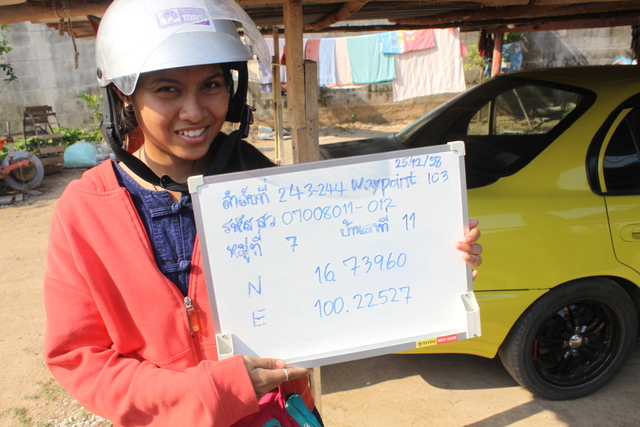 25/12/58
ลำดับที่ 243-244 Waypoint 103
รหัส สว 07008011-012
หมู่ที่ 7 บ้านเลขที่ 11
N 16.73960
E 100.22527